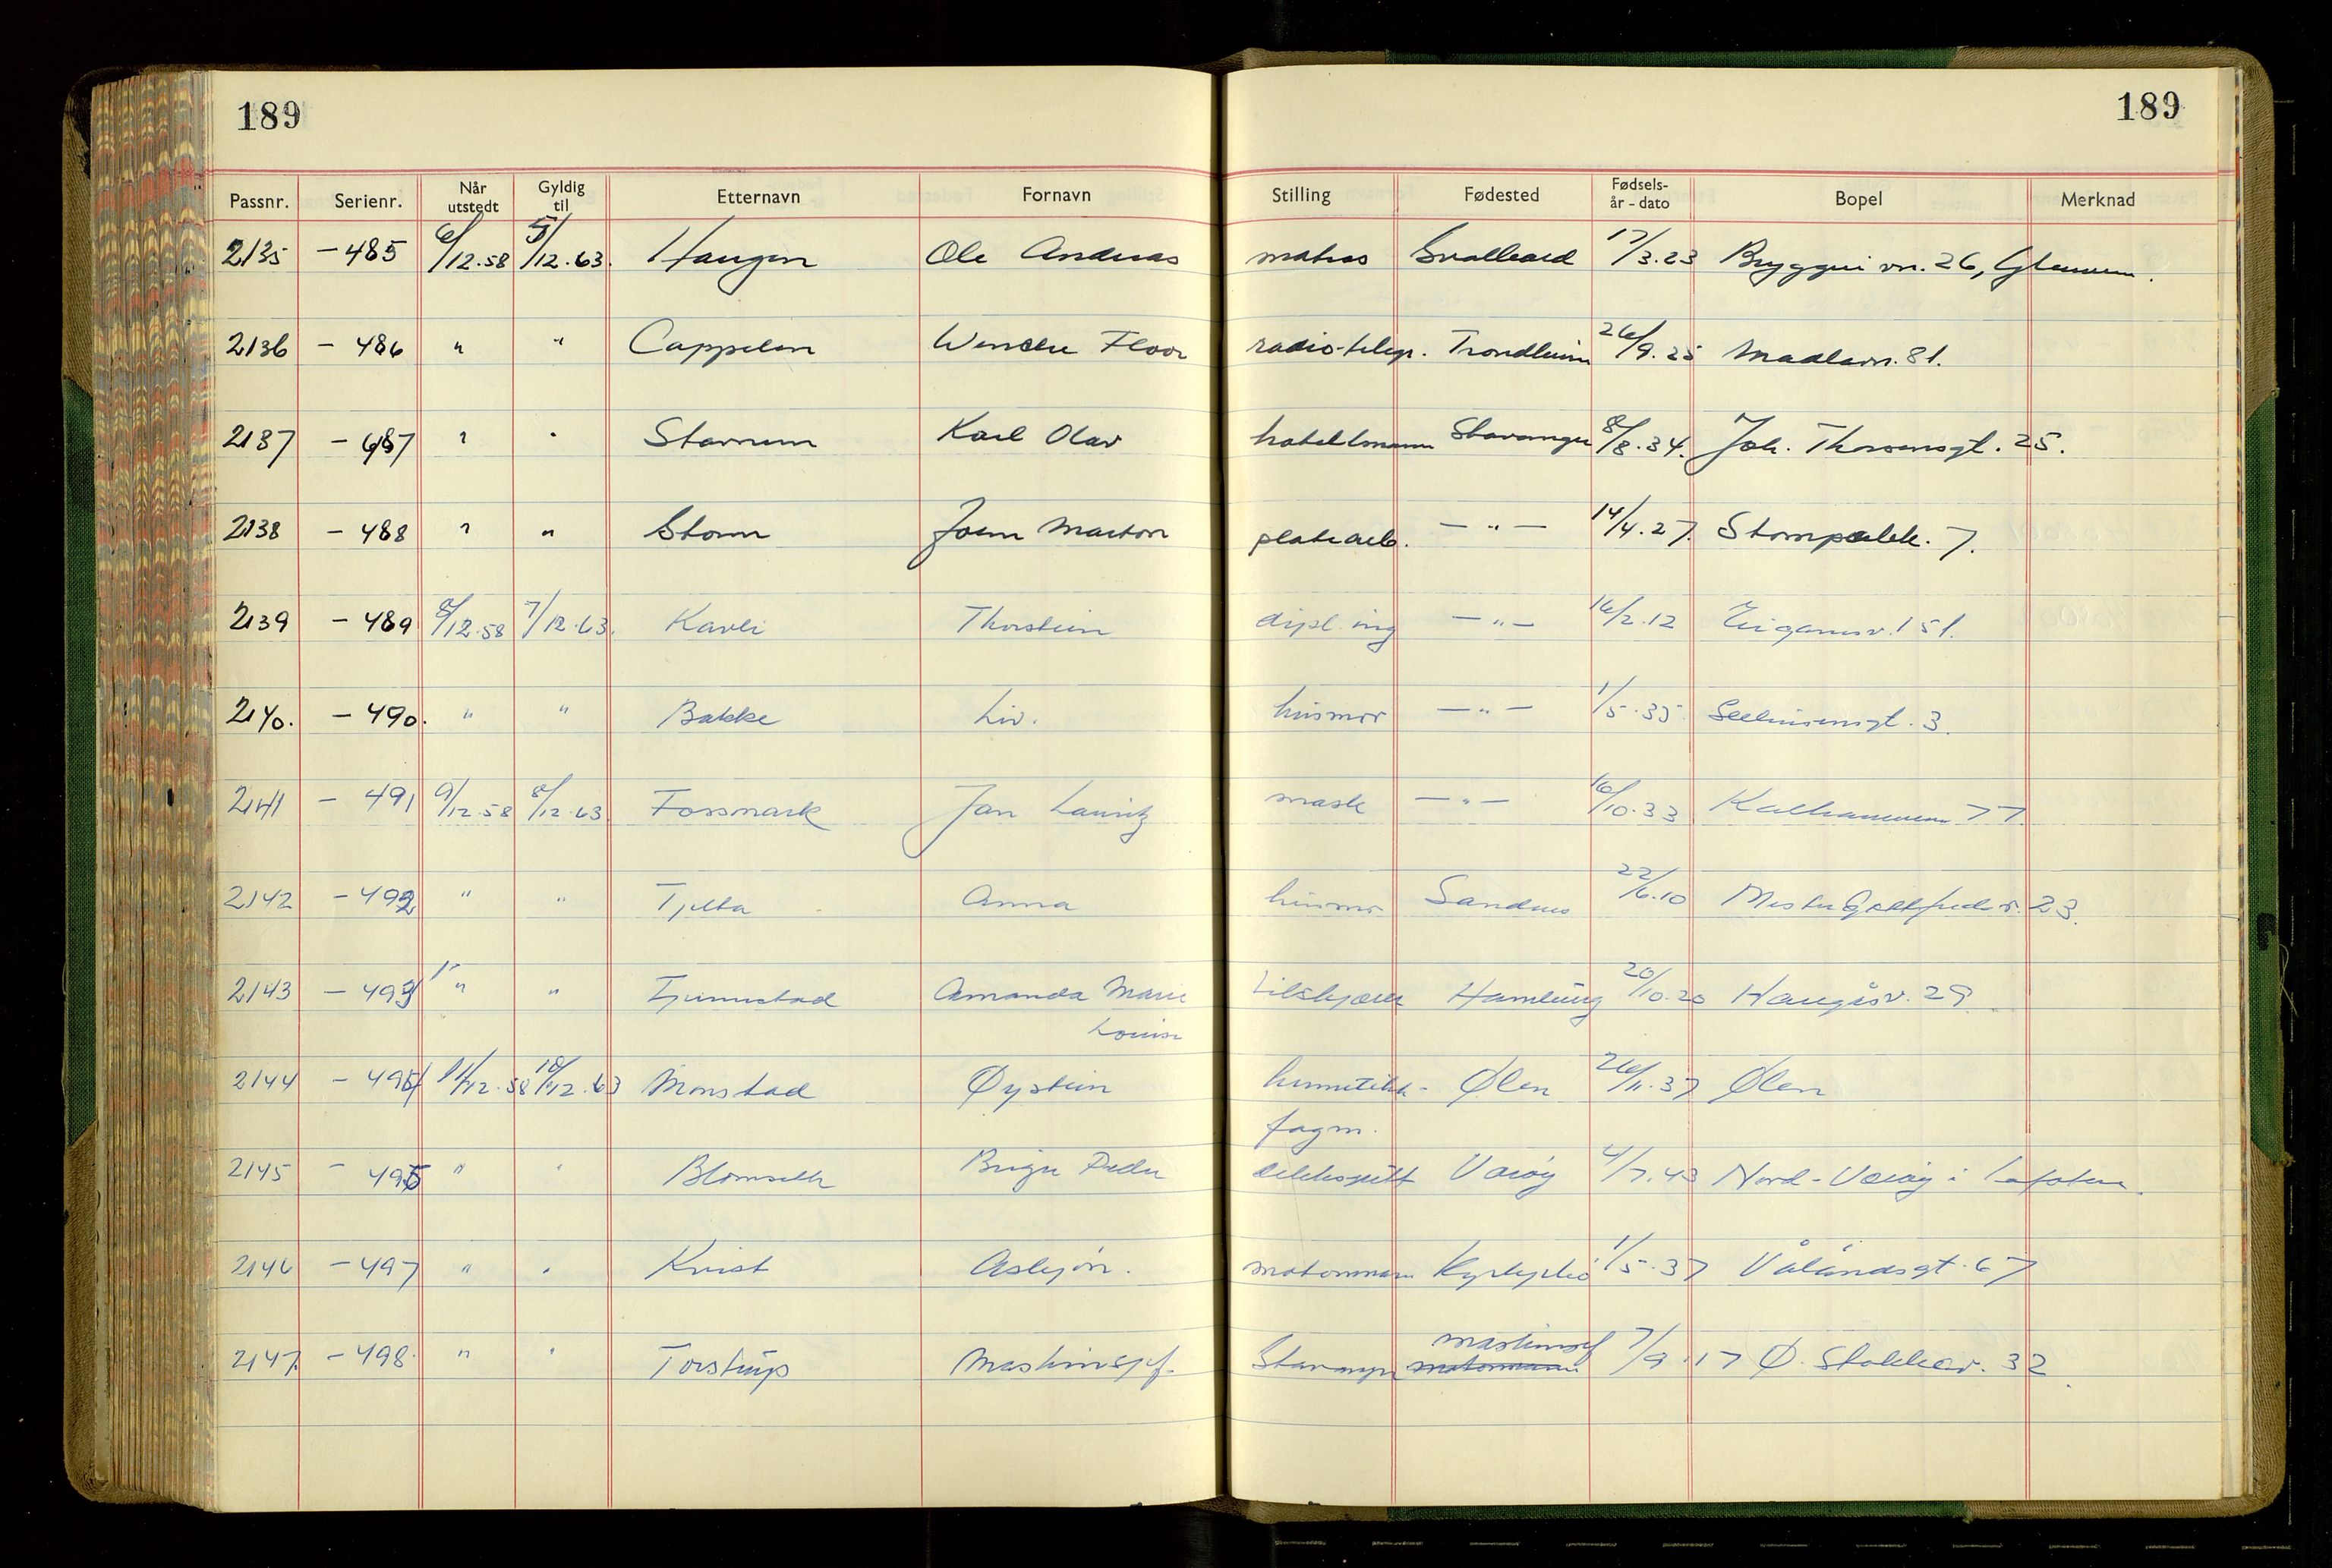 189 189
Passnr. Serienr. Når utstedt Gyldig til Etternavn Fornavn Stilling Fødested Fødsels- år - dato Bopel Merknad
2135 - 485 6/12.58 5/12.63. Haugen Ole Andreas matros Svalbard 17/3.23 Bryggeri vn. 26,
2136 - 486 " " Cappelen Wenche Floor radio-telegr. Trondheim 26/9.25 Madlavn. 81.
2137 - 487 " " Stavnem Karl Olav hotellmann Stavanger 8/8.34. Joh. Thorsensgt. 25.
2138 - 488 " " Storm John Marton platearb. - " - 14/4.27. 7.
2139 - 489 8/12.58 7/12.63. Kavli Thorstein dipl. ing - " - 16/2.12 Eiganesv. 151.
2140. - 490. " " Bakke Liv. husmor - " - 1/5.35 3.
2141 - 491 9/12.58 8/12.63 Fossmark Jan Lauritz mask - " - 16/10.33 Kalhammeren 77
2142 - 492 " " Tjelta Anna husmor Sandnes 22/6.10 Mester Gottfreds v. 23.
2143 - 493 " " Amanda Marie Hamburg 20/10.20 Haugåsv. 29.
Louise
2144 - 495 11/12.58 10/12.63 Monstad Øystein hermetikk- Ølen 26/11.37 Ølen
fagm.
2145 - 496 " " Birger Peder dekksgutt Værøy 4/7.43 Nord-Værøy i Lofoten.
2146 - 497 " " Kvist Asbjørn. motormann 1/5.37 Vålandsgt. 67
maskinsjef
2147. - 498. " " Torstrup Maskinsjef. Stavanger motormann 7/9.17 Ø. Stokkav. 32.